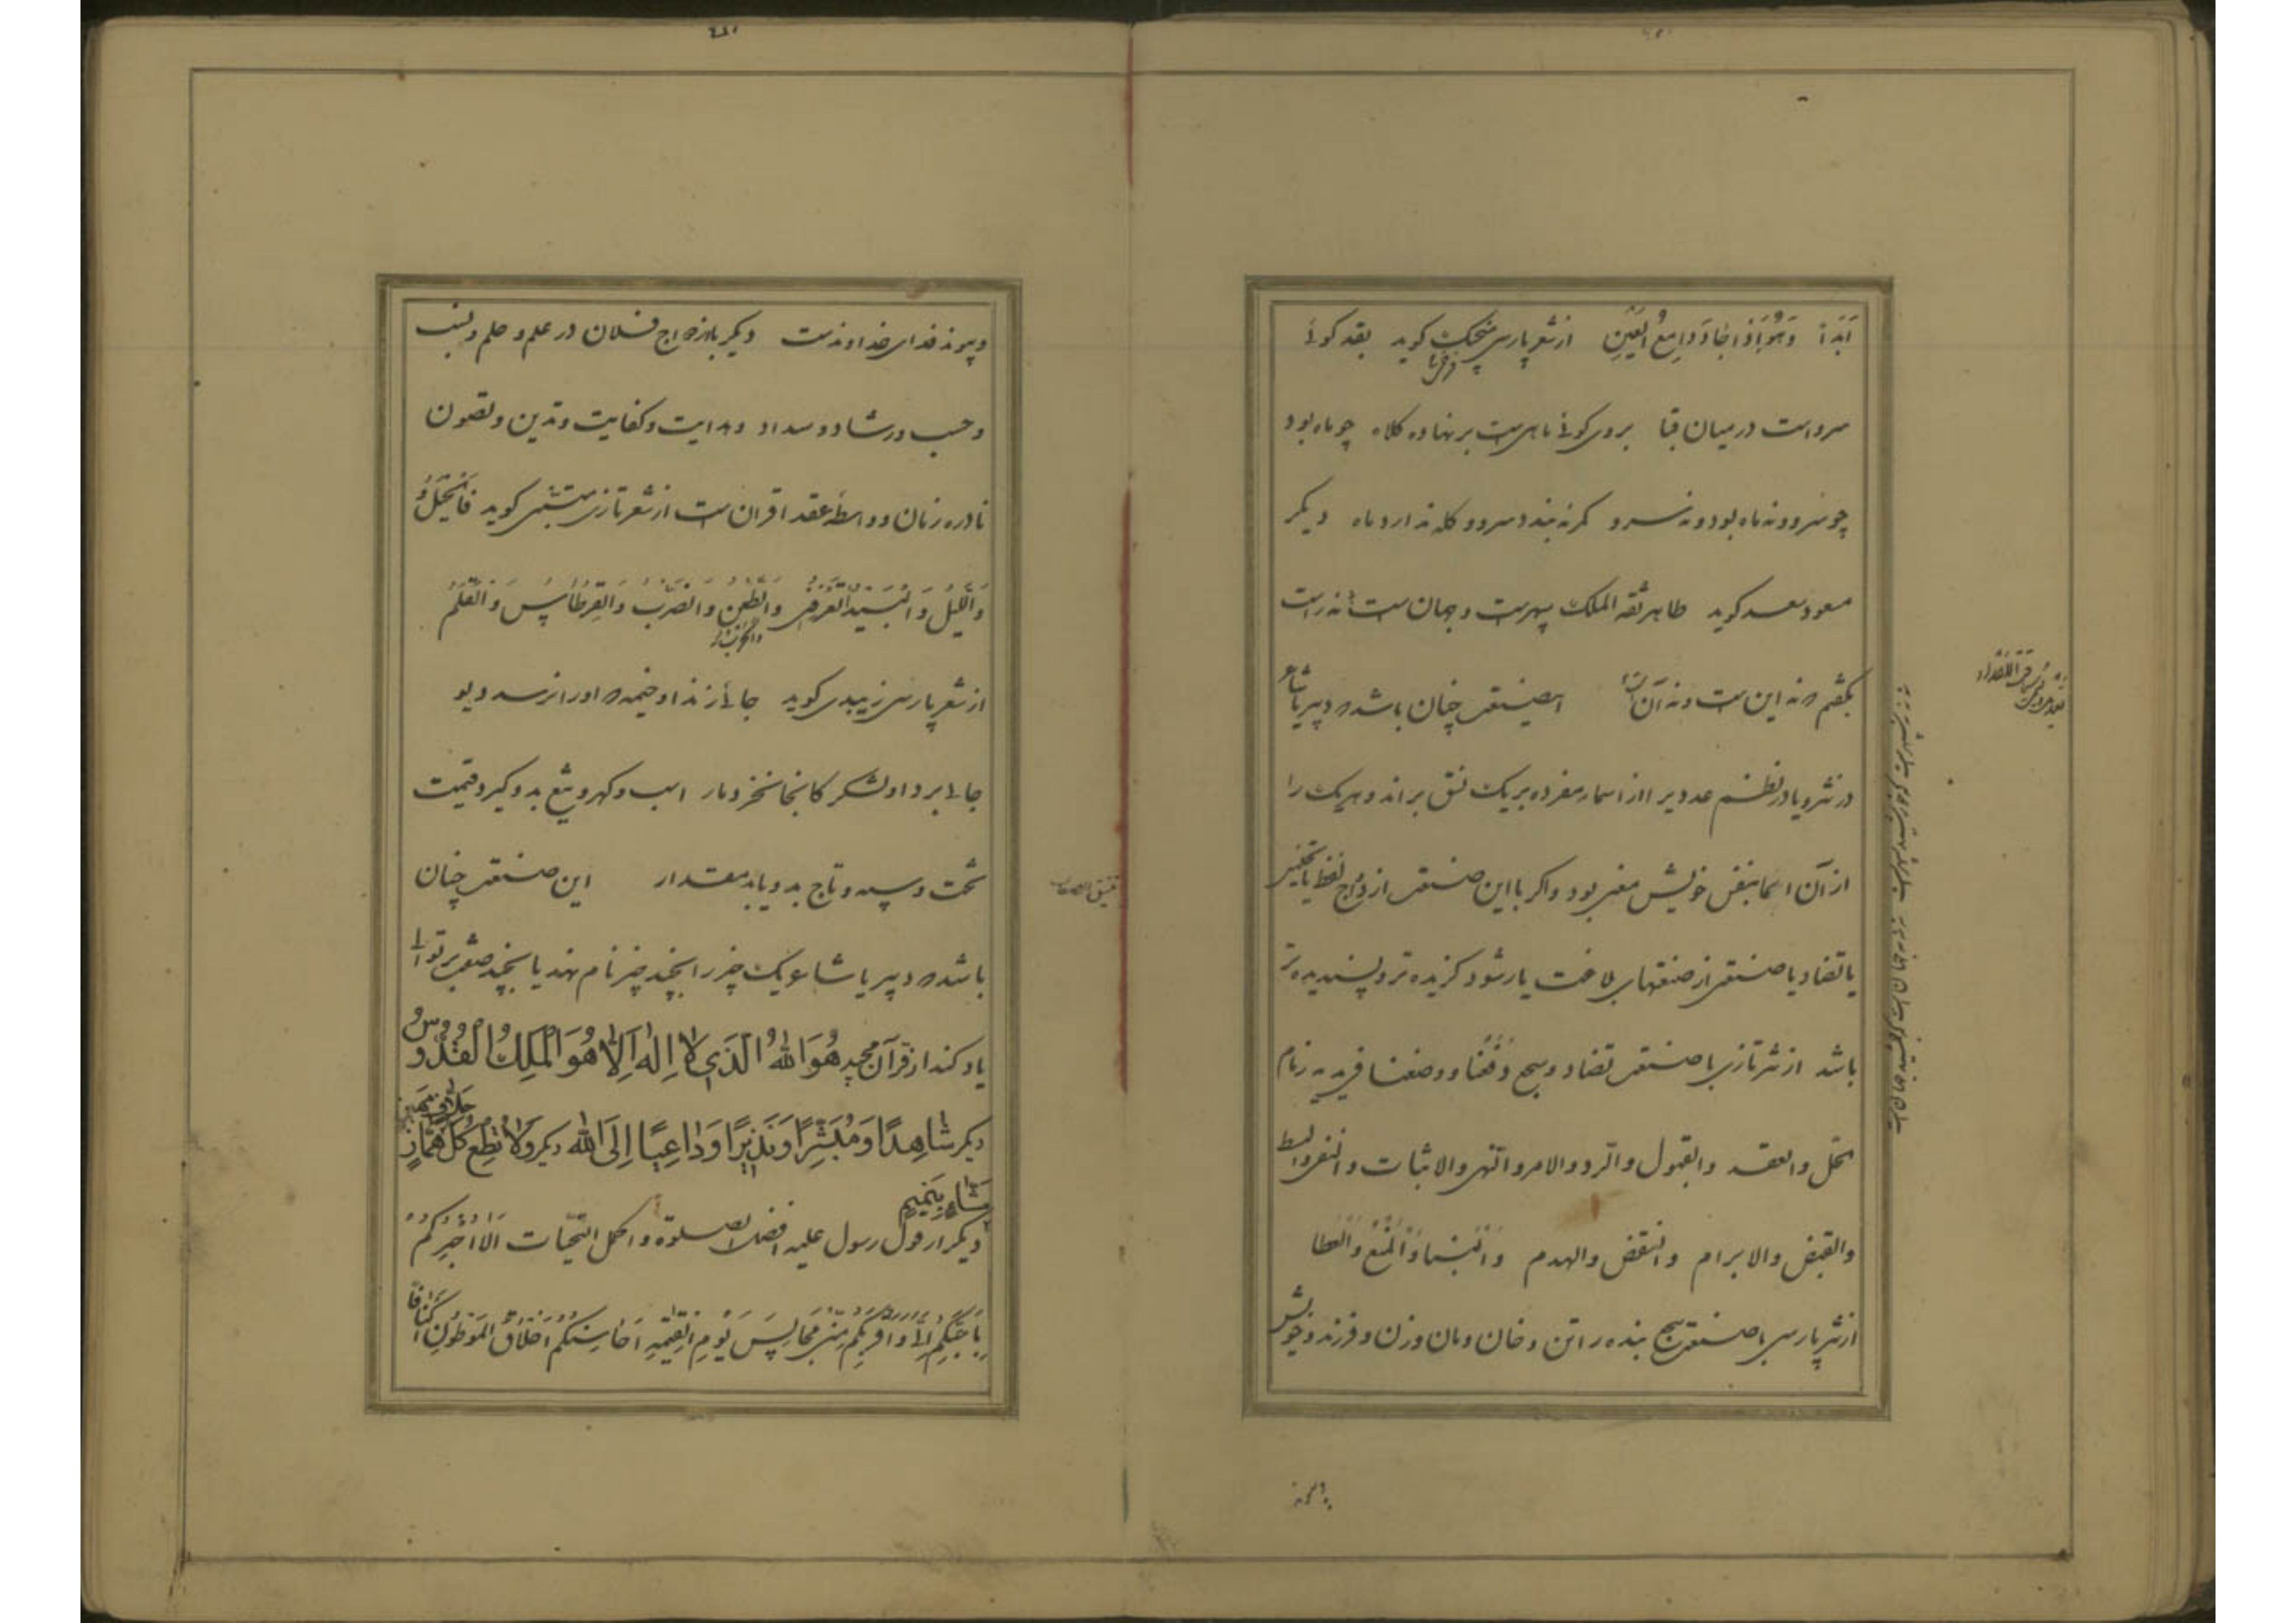 اَبَدَاً وَهُوَ اِذَا جَاءَ وَدَامِعُ الْعَيْنِ از شعر پارسی منجیک گوید بقد گوئی
سرواست در میان قبا بروی گوئی ماهیست برنهاده کلاه چو ماه بود
چو سرو و نه ماه بود و نه سرو کمر نه بندد سرو و کله ندارد ماه دیکر
مسعود سعد کوید طاهر ثقة الملک سپهرست و جهان ست نه راست
بگفتم که نه این ست و نه آن این صنعت چنان باشد که دبیر یا شاعر
در نثر و یا در نظم عددی را از اسماء مفرده بر یک نسق براند و هریک را
از آن اسما بنفس خویش معنی بود و اگر با این صنعت ازدواج لفظ یا تجنیس
یا تضاد یا صنعتی از صنعتهای بلاغت یار شود گزیده تر و پسندیده تر
باشد از نثر تازی با صنعت تضاد و سجع زمام
الحل والعقد والقبول والرد والامر والنهی والاثبات والنفی والبسط
والقبض والابرام والنقض والهدم والبناء والمنع والعطا
از نثر پارسی با صنعت سجع بنده را تن و خان و مان و زن و فرزند و خویش
و پیوند فدای خداوندست دیکر فلان در علم و حلم و نسب
و حسب و رشاد و سداد و هدایت و کفایت و تدین و تصون
نادره زمان و واسطه عقد اقران ست از شعر تازی متنبی کوید فَالْخَيْلُ
وَاللَّيْلُ وَالْبَيْدَاءُ تَعْرِفُنِي وَالطَّعْنُ وَالضَّرْبُ وَالْقِرْطَاسُ وَالْقَلَمُ
از شعر پارسی زیبدی کوید جائی زند او خیمه که اورا نرسد دیو
جائی برد او لشکر کانجا نخزد مار اسب و کهر و تیغ بدو کیرد قیمت
تخت و سپه و تاج بدو یابد مقدار این صنعت چنان
باشد که دبیر یا شاعر یک چیز را بچند چیز نام نهد یا بچند صفت بر توالی
یاد کند از قرآن مجید هُوَ اللهُ الَّذِي لَا اِلهَ اِلَّا هُوَ الْمَلِكُ الْقُدُّوسُ
دیکر شَاهِدًا وَمُبَشِّرًا وَنَذِيرًا وَدَاعِيًا اِلَى اللهِ دیکر وَلَا تُطِعْ كُلَّ حَلَّافٍ مَهِينٍ هَمَّازٍ
مَشَّاءٍ بِنَمِيمٍ
دیکر از قول رسول علیه افضل الصلوة و اکمل التحیات اَلَا اُخْبِرُكُمْ
بِاَحَبِّكُمْ اِلَيَّ وَاَقْرَبِكُمْ مِنِّي مَجَالِسَ يَوْمَ الْقِيمَةِ اَحَاسِنُكُمْ اَخْلَاقًا الْمُوَطَّئُونَ اَكْنَافًا